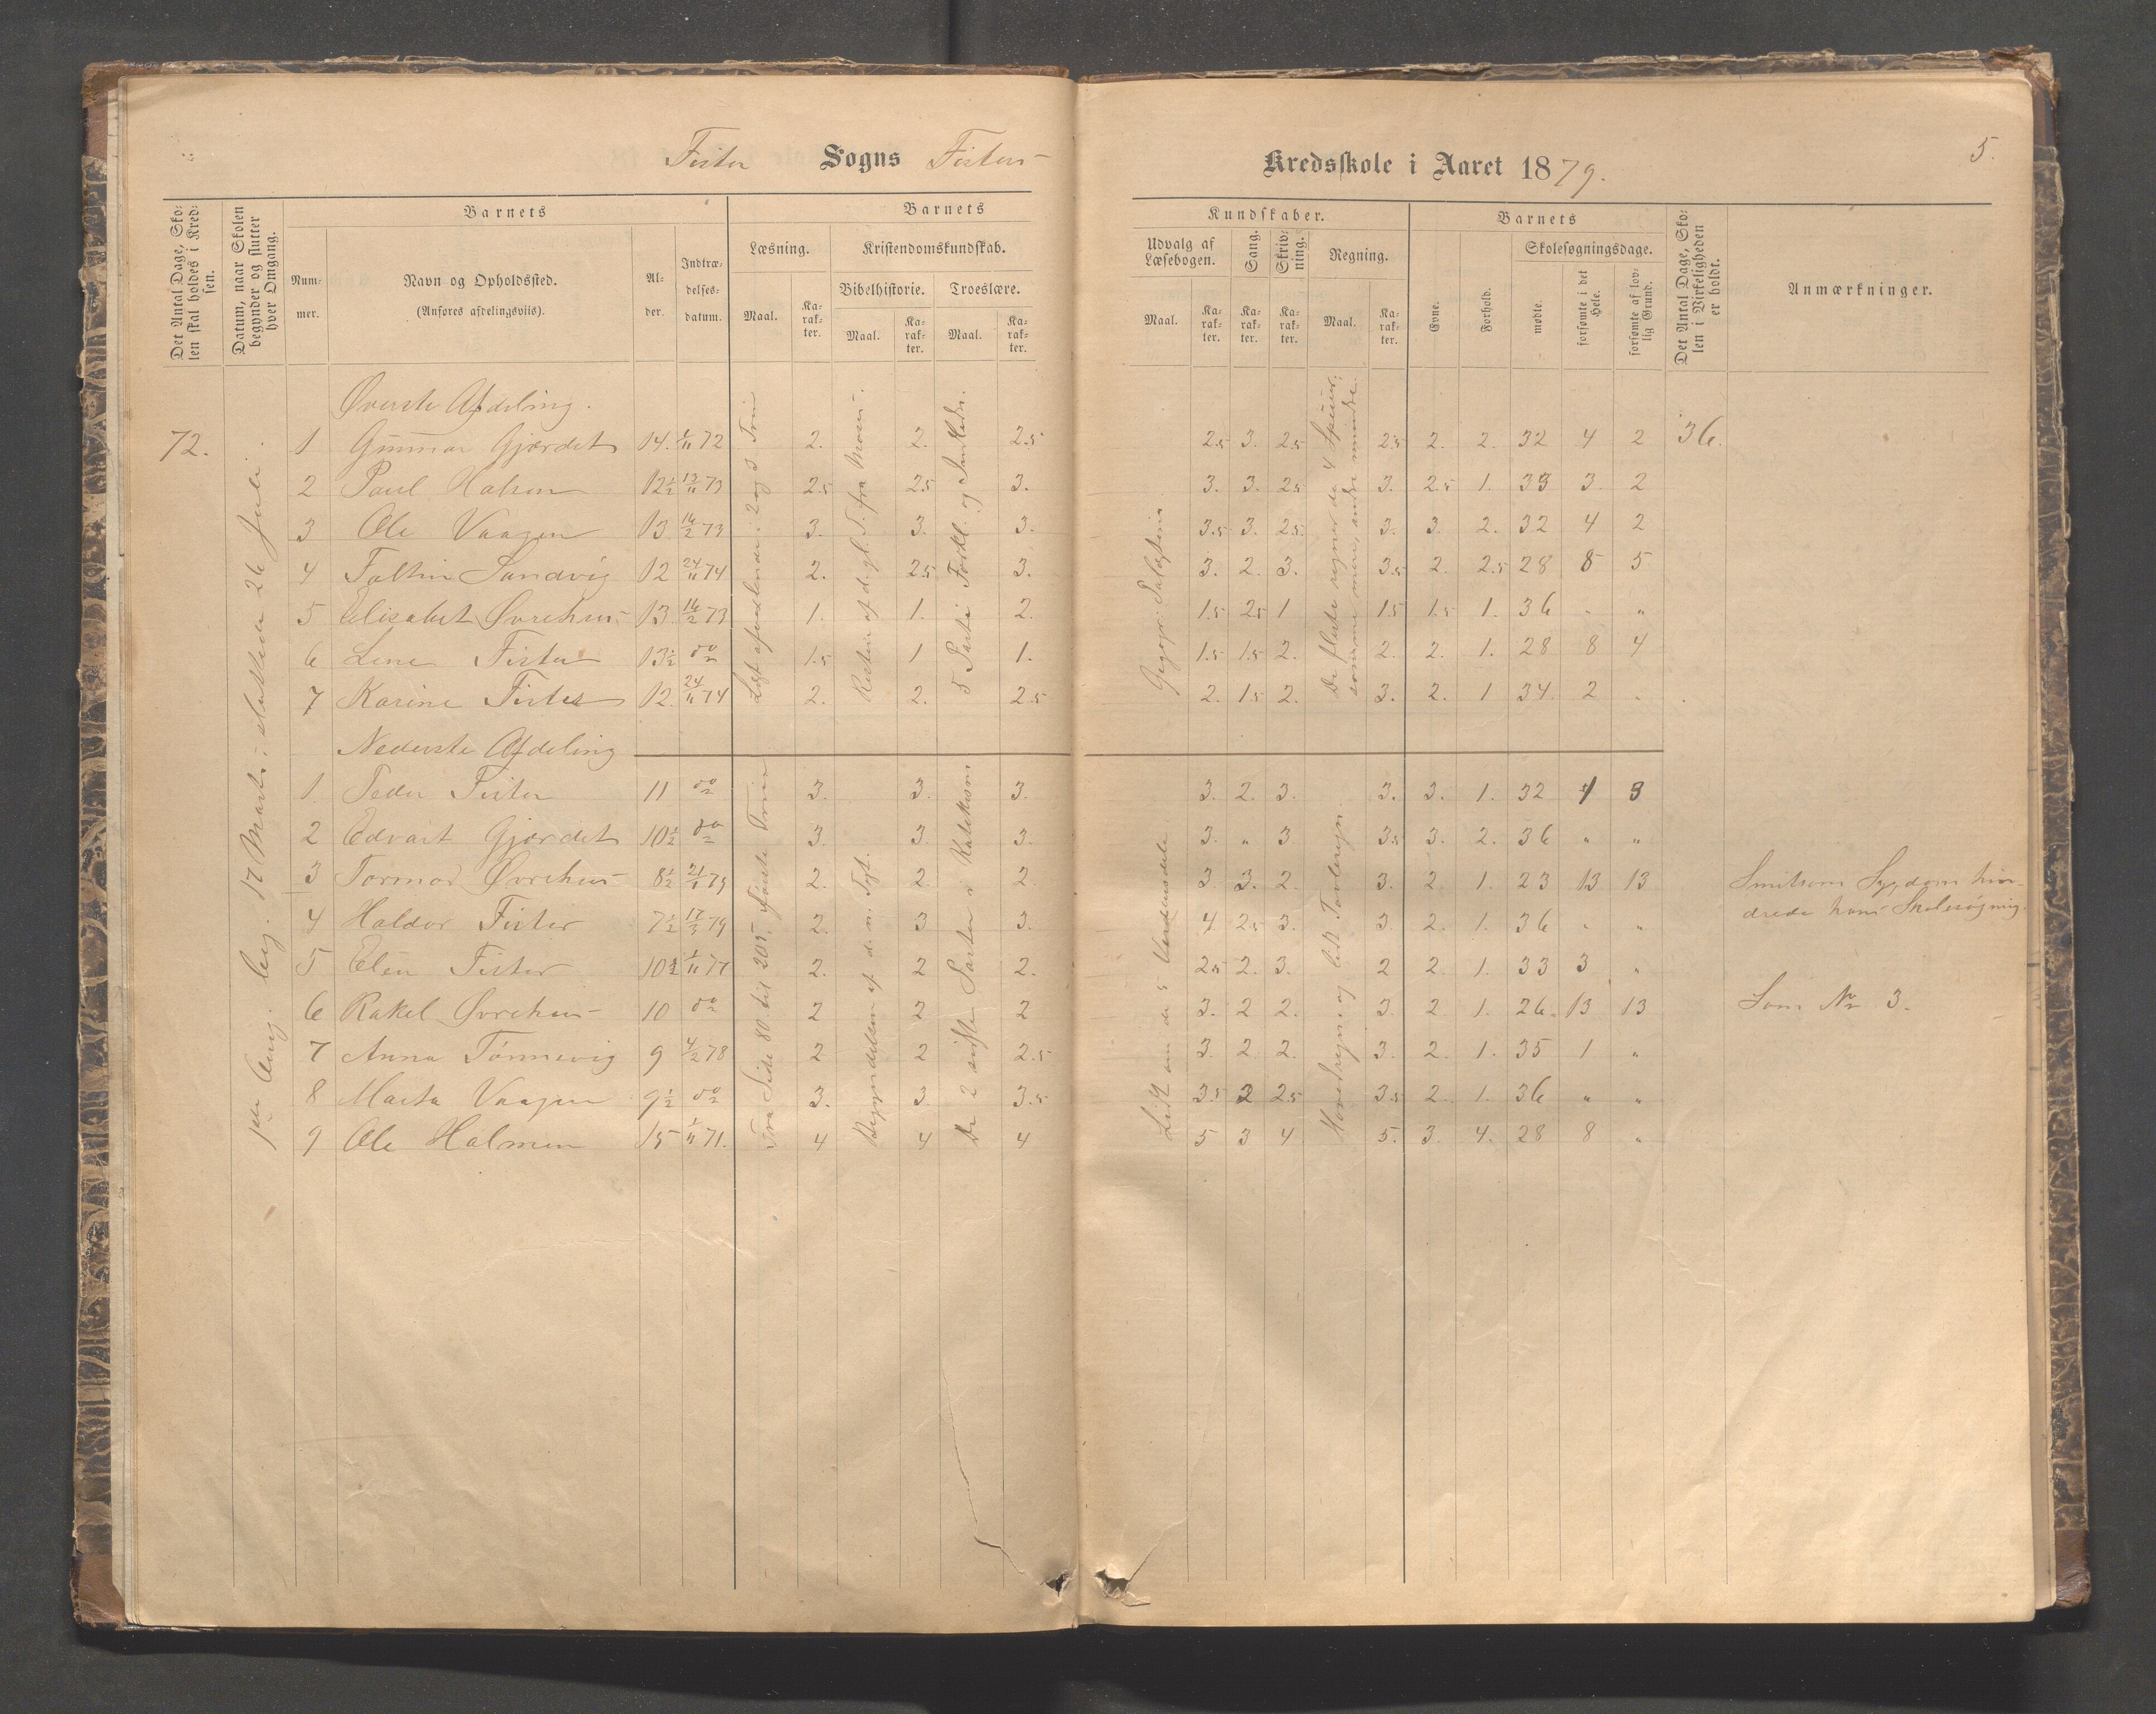 Fister Sogns Fisters
Kredsskole i Aaret 1879.
5.
Det Antal Dage, Skolen skal holdes i Kredsen.
Datum, naar Skolen begynder og slutter hver Omgang.
Barnets
Nummer.
Navn og Opholdssted.
(Anføres afdelingsviis).
Alder.
Indtrædelsesdatum.
Barnets
Læsning.
Maal.
Karakter.
Kristendomskundskab.
Bibelhistorie.
Maal.
Karakter.
Troeslære.
Maal.
Karakter.
Kundskaber.
Udvalg af Læsebogen.
Maal.
Karakter.
Sang.
Karakter.
Skrivning.
Karakter.
Regning.
Maal.
Karakter.
Barnets
Evne.
Forhold.
Skolesøgningsdage.
mødte.
forsømte i det Hele.
forsømte af lovlig Grund.
Det Antal Dage, Skolen i Virkeligheden er holdt.
Anmærkninger.
Øverste Afdeling.
72. 1 Gunnar Gjærdet 14. 72 2. 2. 2.5 2.5 3. 2.5 2.5 2. 2. 32 4 2 36.
2 Paul Halsen 12½ 13/11 73 2.5 2.5 3. 3. 3. 2.5 3. 2.5 1. 33 3 2
3 Ole Vaagen 13 16/2 73 3. 3. 3. 3.5 3. 2.5. 3. 3. 2. 32 4 2
4 Sandvig 12 24/11 74 2. 2.5 3. 3. 2. 3. 3.5 2. 2.5 28 8 5
5 Elisabet Øvrehus 13 16/2 73 1. 1. 2. 1.5 2.5 1 1.5 1.5 1. 36 " "
6 Line Fister 13½ do 1.5 1 1. 1.5 1.5 2. 2. 2. 1. 28 8 4
7 Karine Fister 12. 24/11 74 2. 2. 2.5 2. 1.5 2. 3. 2. 1 34. 2 "
Nederste Afdeling
1. Peder Fister 11 do 3. 3. 3. 3. 2. 3. 3. 3. 1. 32 4 3
2 Edvart Gjærdet 10½ do 3. 3. 3. 3. " 3 3.5 3. 2. 36 " "
3 Tormod Øvrehus 8½ 21/1 79 2. 2. 2. 3 3. 2. 3. 2. 1. 23 13 13 Smitsom Sygdom hin-
drede hans Skolesøgning.
4 Haldor Fister 7½ 17/3 79 2. 3 3. 4 2.5 3. 3. 2. 1. 36 " "
5 Elen Fister 10½ 1/11 77 2. 2 2. 2.5 2. 3. 2 2 1. 33 3 "
6 Rakel Øvrehus 10 do 2 2 2 3. 2 2. 3. 2 1. 26. 13 13 Som No 3.
7 Anna Tønnevig 9 4/2 78 2 2 2.5 3. 2 2. 3. 2. 1. 35 1 "
8 Marta Vaagen 9½ do 3. 3. 3.5 3.5 2 2.5 3.5 2. 1. 36 " "
9 Ole Halmen 15 1/11 71. 4 4 4 5 3 4 5. 3. 4. 28 8 "
1ste Omg. beg. 17 Marts; sluttede 26 Juli.
Læst afvexlende i 2 og 3 Trin
Resten af d. gl. T. fra Moses.
5 Parti Forkl. og
De fleste regner de 4 Speeies;
somme mere, andre mindre.
Fra Side 80 til 205, Første Trin
Begyndelsen af d. n. Test.
De 2 sidste Parter i Katekismn
Lidt om de 5 Verdensdele
Hovedregne og lidt Tavleregn.